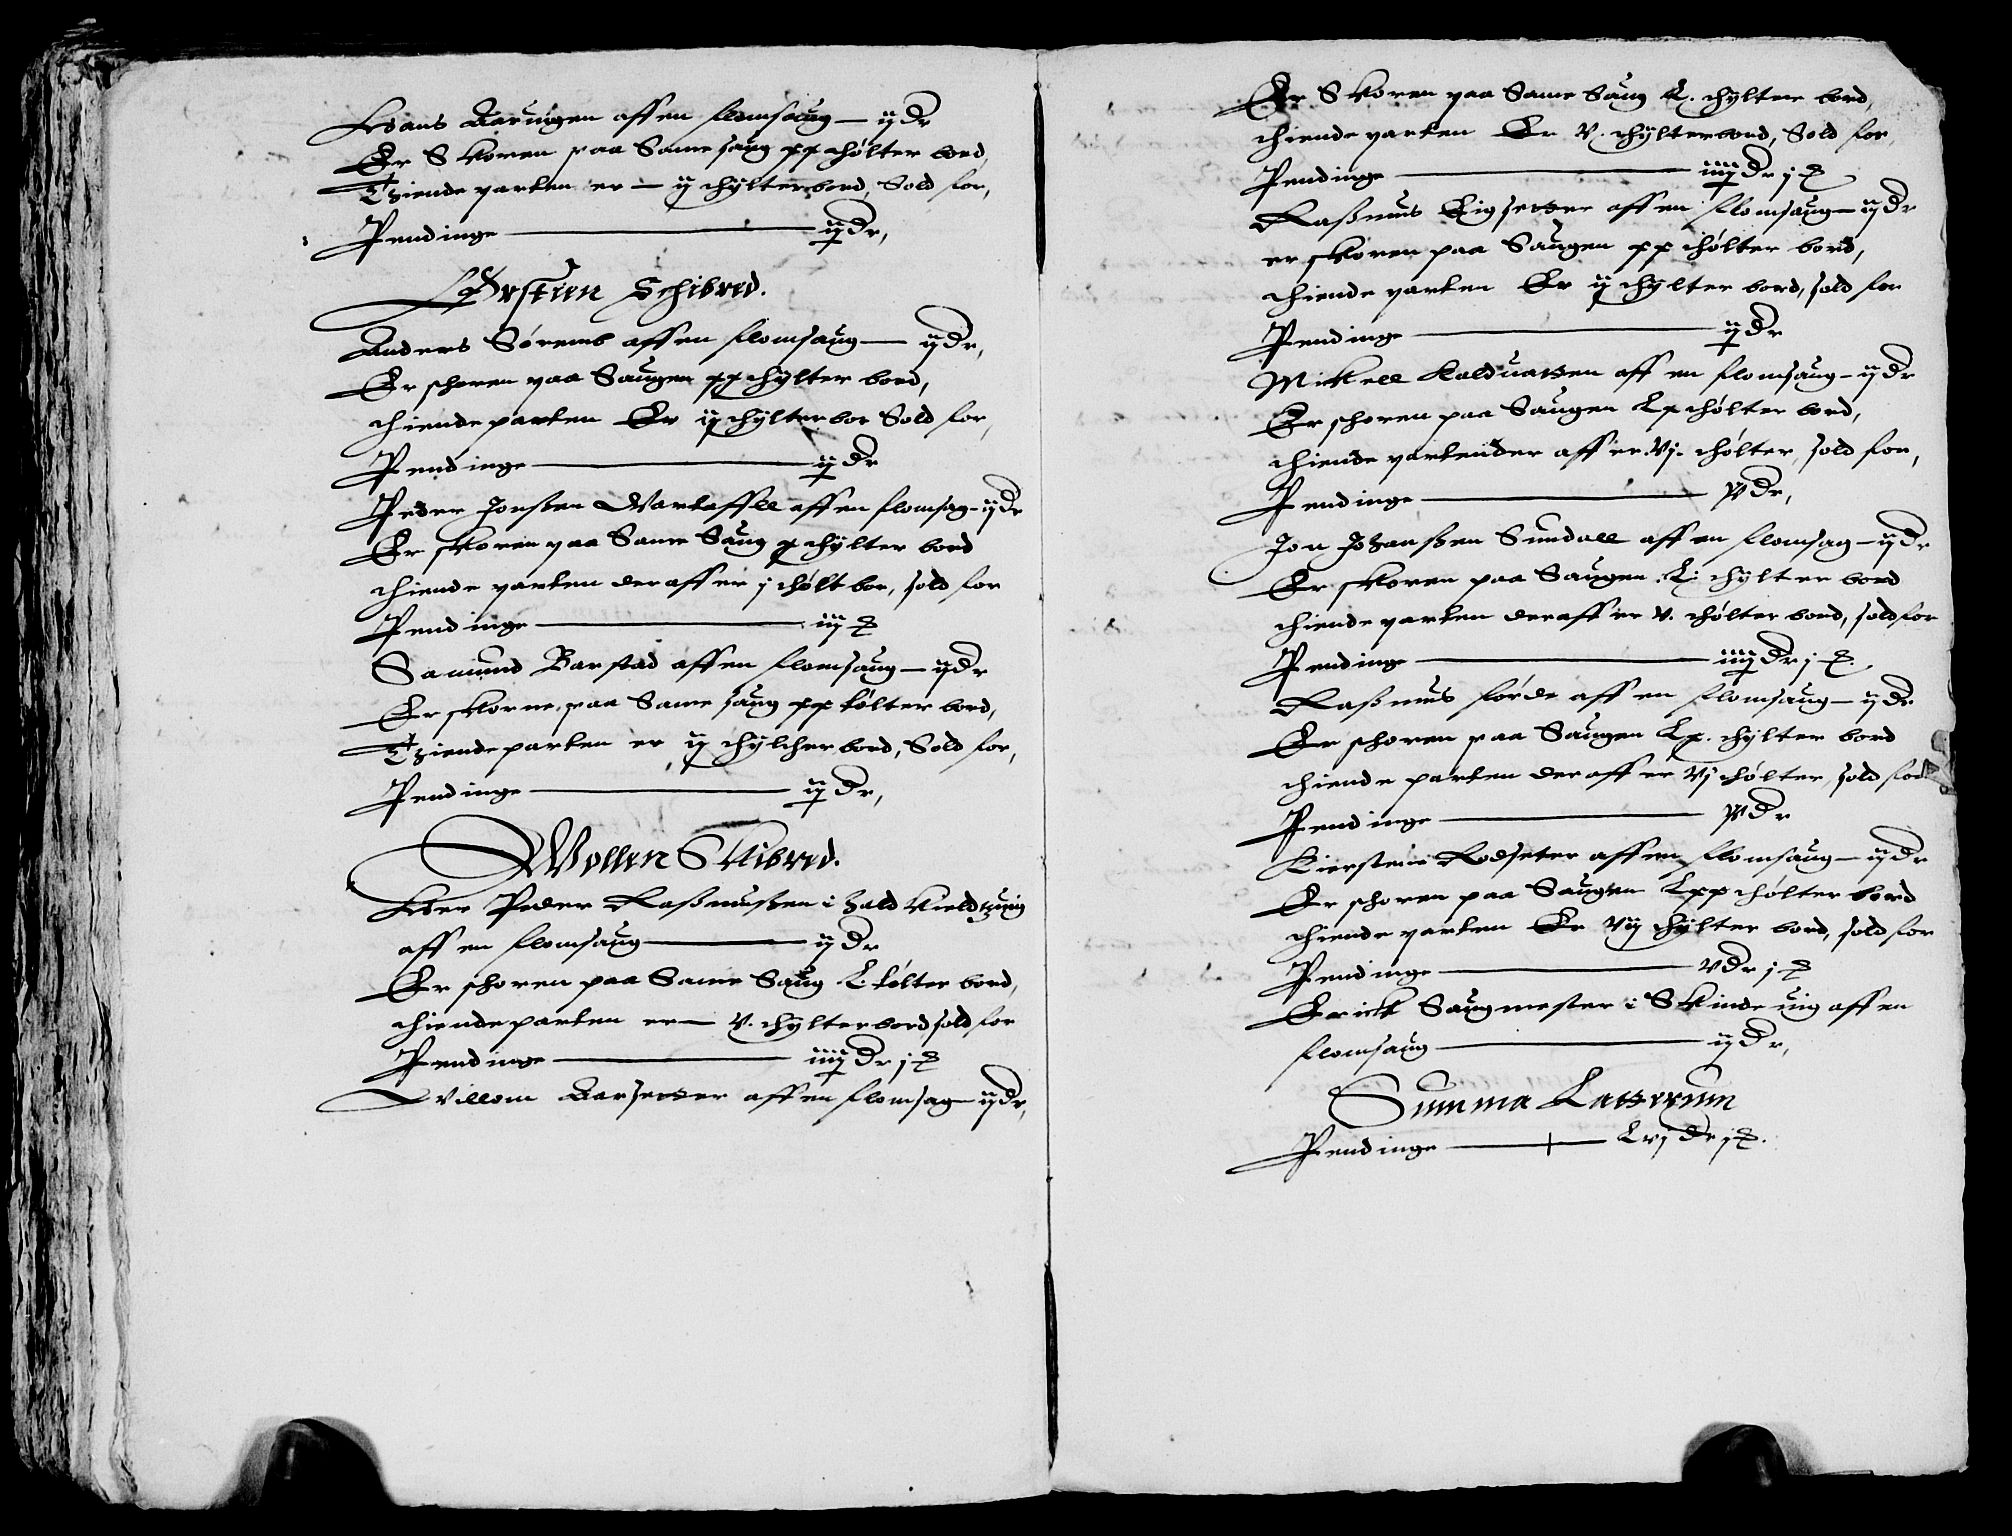 Hans Aaruigen aff en flomsaug — ij dr
Er Skoren paa Same saug xx thølter bord,
Tziende parten er — ij thÿlter bord, Sold for,
Pendinge — ij dr,
Ørsteen Schibred.
Anders Sørennb aff en flomsaug — ij dr,
Er schoren paa Saugen xx thÿlter bord,
thiende parten Er ij thÿlter bor Sold for,
Pendinge — ij dr
Peder Jonßen Wartaffll aff en flomsag - ij dr
Er skoren paa Same Saug x thÿlter bord
thiende parten der aff er j thølt bor, sold for
Pendinge — iij
Samund Barstad aff en flomsaug — ij dr
Er skorne paa Same saug xx tølter bord,
Tziende parten er ij thÿlther bord, Sold for,
Pendinge — ij dr,
Wollen Skibred.
Her Peder Raßmusßen i hald Kield
aff en flomsaug — ij dr
Er schoren paa Same Saug L. tølter bord,
thiende parten er — V. thÿlter bord, sold for
Pendinge — iiij dr j
Villom Aarsetter aff en flomsag — ij dr,
Er Skoren paa Same Saug L. thÿlter bord,
thiende parten Er V. thÿlter bord, Sold for,
Pendinge — iiij dr j
Raßmus Eigsetter aff en flomsaug — ij dr
er skoren paa Saugen xx thølter bord,
thiende parten Er ij thÿlter bord, sold for
Pendinge — ij dr
Mickell Kalduatten aff en flomsaug - ij dr
Er schoren paa Saugen Lx thølter bord,
thiende parten der aff er Vj. thølter, sold for,
Pendinge — V dr,
Jon Johanßen Sundall aff en flomsag — ij dr
Er skoren paa Saugen L: thÿlter bord
thiende parten der aff er V. thølter bord, sold for
Pendinge — iiij dr j
Raßmus førde aff en flomsaug — ij dr
Er schoren paa Saugen Lx. thÿlter bord
thiende parten der aff er Vj thølter, sold for
Pendinge — V dr
Kierstene Rodseter aff en flomsaug — ij dr
Er schoren paa Saugen Lxx thølter bord
thiende parten Er Vij thÿlter bord, sold for
Pendinge — V dr j
Erick Saugmester i Skinde uig aff en
flomsaug — ij dr,
Summa Latterum
Pendinge — Lxj dr j